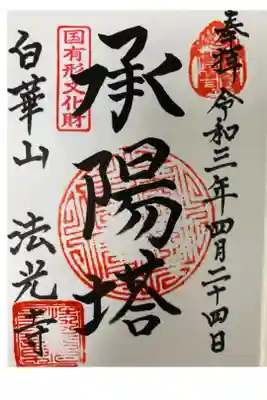 奉拝 令和三年四月二十四日
国有形文化財
承陽塔
白華山 法光寺